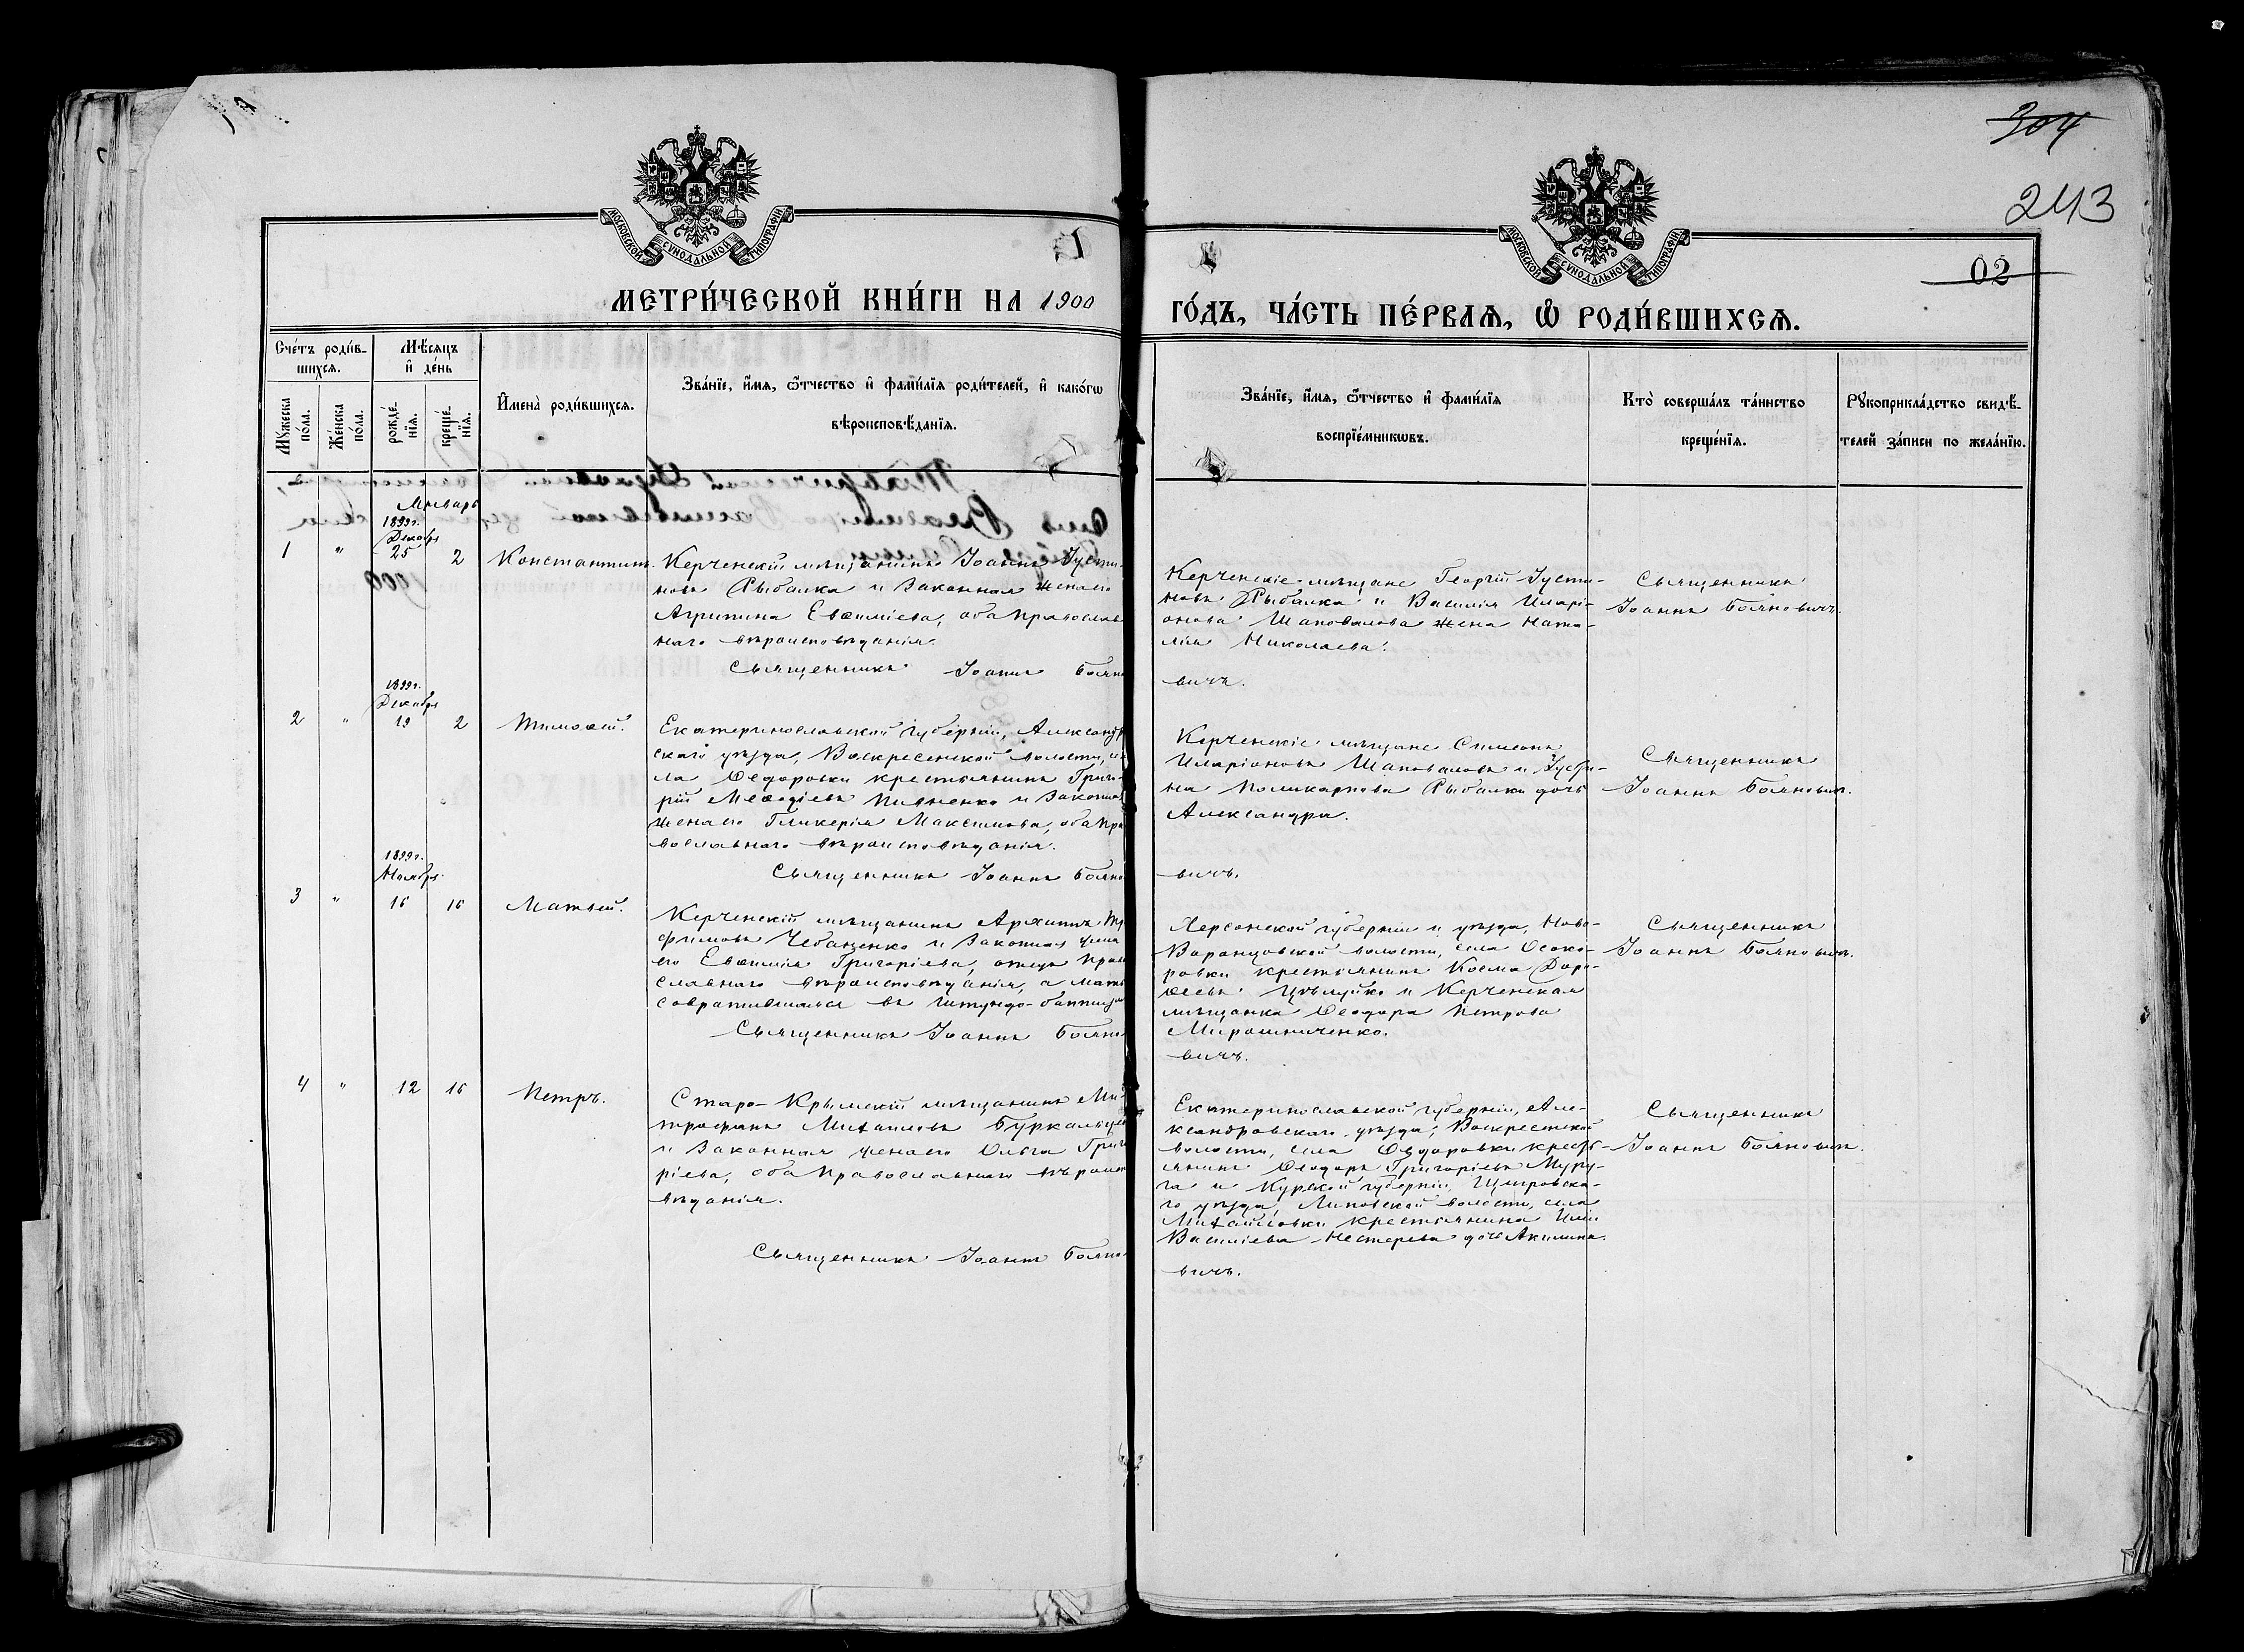 304
243
02
МОСКОВСКОЙ СѴНОДАЛЬНОЙ ТИПОГРАФІИ
МОСКОВСКОЙ СѴНОДАЛЬНОЙ ТИПОГРАФІИ
МЕТРИ́ЧЕСКОЙ КНИ́ГИ НА 1900
ГО́ДЪ, ЧА́СТЬ ПЕ́РВАѦ, Ѡ РОДИ́ВШИХСѦ.
Сче́тъ роди́в-
шихсѧ.
Мѣ́сѧцъ
и҆ де́нь
Мꙋ́жеска по́ла.
Же́нска по́ла.
рожде́-нїѧ.
креще́-нїѧ.
И҆мена̀ роди́вшихсѧ.
Зва́нїе, и҆́мѧ, ѻ҆́тчество и҆ фами́лїѧ роди́телей, и҆ како́гѡ
вѣроисповѣ́данїѧ.
Зва́нїе, и҆́мѧ, ѻ҆́тчество и҆ фами́лїѧ
воспрїе́мникѡвъ.
Кто̀ соверша́лъ та́инство
креще́нїѧ.
Рꙋкоприкла́дство свидѣ́-
телей за́писи по жела́нїю.
Январь
1899г.
Декабр
1 " 25 2 Константинъ.
Керченскій мѣщанинъ Іоаннъ Іусти-
новъ Рыбалка и законная жена его
Агрипина Евѳиміева, оба православ
наго вѣроисповѣданія.
Священникъ Іоаннъ Бояно
Керченскіе мѣщане Георгій Іусти-
новъ Рыбалка и Василія Иларі-
онова Шаповалова жена Ната-
лія Николаева.
вичъ.
Священникъ
Іоаннъ Бояновичъ.
1899г.
Декабря
2 " 19 2 Тимоѳей.
Екатеринославской губерніи, Александр
скаго уѣзда, Воскресенской волости, се-
ла Ѳедоровки крестьянинъ Григо-
рій Меѳодіевъ Пивненко и законная
жена его Гликерія Максимова, оба пра
вославнаго вѣроисповѣданія.
Священникъ Іоаннъ Бояно
Керченскіе мѣщане Симеонъ
Иларіоновъ Шаповаловъ и Іусти-
на Поликарпова Рыбалки дочь
Александра.
вичъ.
Священникъ
Іоаннъ Бояновичъ.
1899г.
Ноября
3 " 16 16 Матѳей.
Керченскій мѣщанинъ Архипъ Тр
фимовъ Чебаненко и законная жена
его Евѳимія Григоріева, отецъ право
славнаго вѣроисповѣданія, а мать
совратившаяся въ штундо-баптизмъ
Священникъ Іоаннъ Бояно-
Херсонской губерніи и уѣзда, Ново-
Воронцовской волости, села Осоко-
ровки крестьянинъ Косма
и Керченская
мѣщанка Ѳеодора Петрова
Мирошниченко.
вичъ.
Священникъ
Іоаннъ Бояновичъ.
4 " 12 16 Петръ.
Старо-Крымскій мѣщанинъ Ми-
трофанъ Михаиловъ
и законная жена его Ольга Григо
ріева, оба православнаго вѣроиспо
вѣданія.
Священникъ Іоаннъ Бояно-
Екатеринославской губерніи, Але-
ксандровскаго уѣзда, Воскресенской
волости, села Ѳедоровки кресть-
янинъ Ѳеодоръ Григоріевъ Муру-
га и Курской губерніи, Щигровска-
го уѣзда, Липовской волости, села
Михайловки крестьянина Иліи
Василіева Нестерева дочь Акилина.
вичъ.
Священникъ
Іоаннъ Бояновичъ.